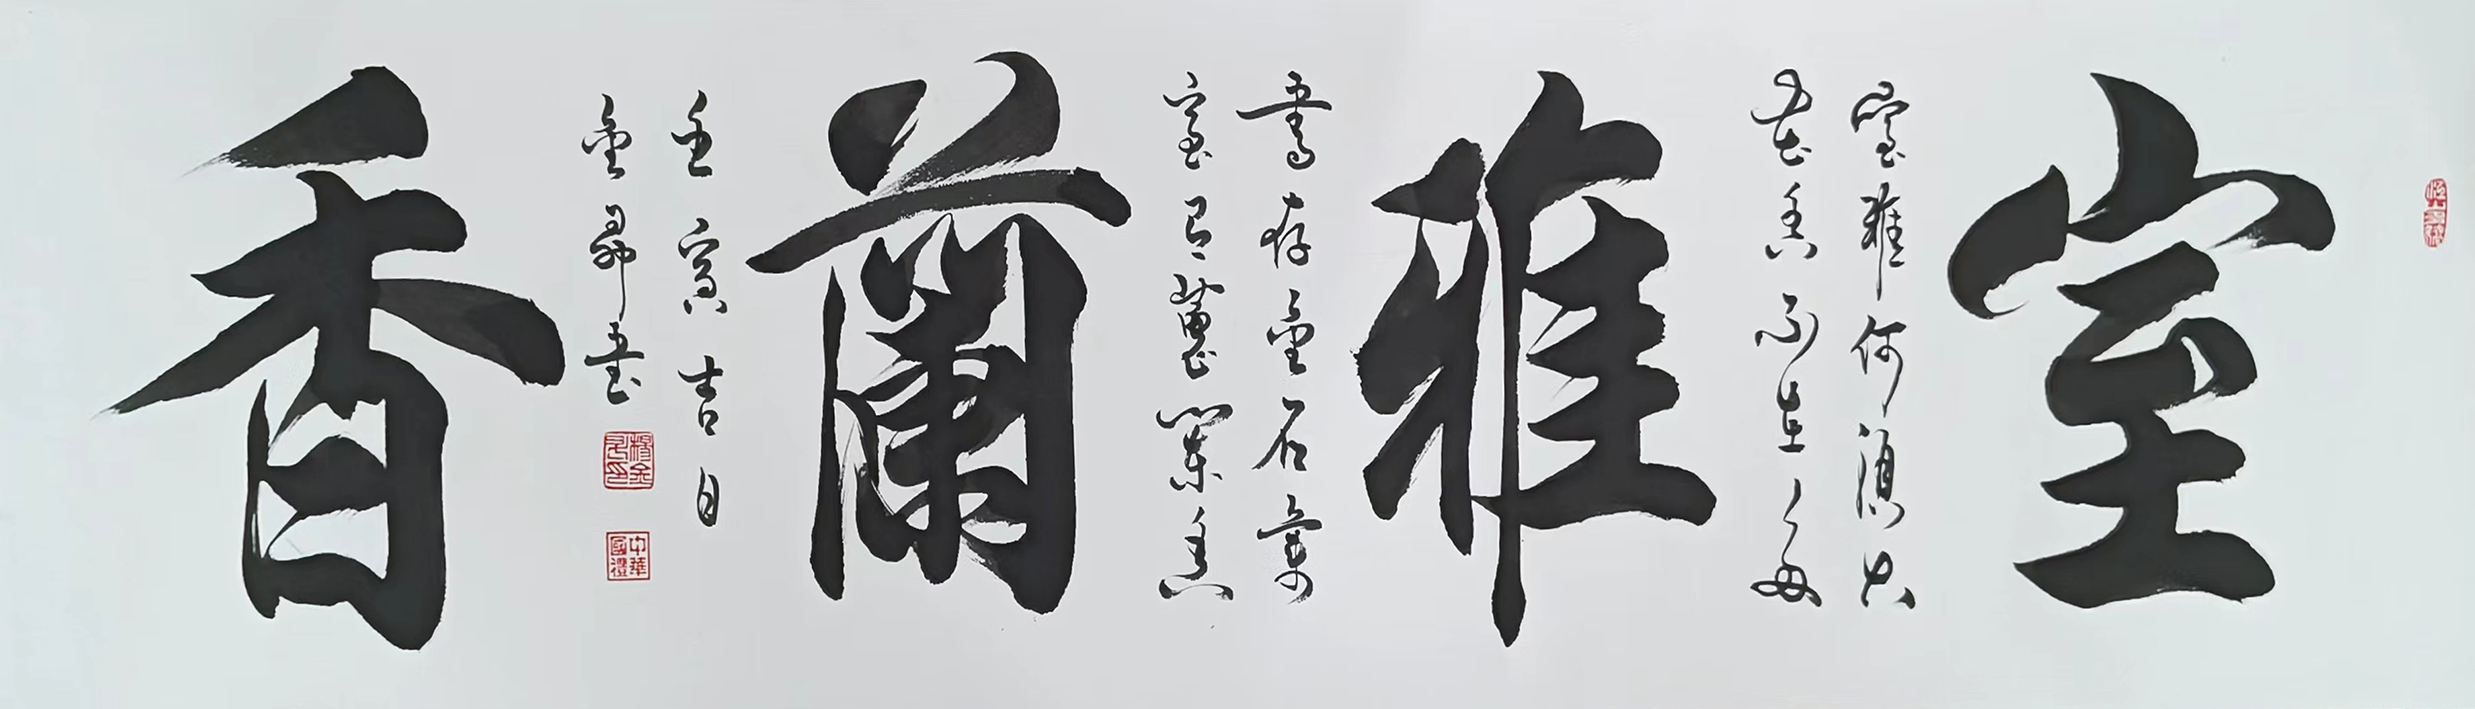 室
室雅何須大
花香不在多
雅
書存金石氣
室有蕙蘭香
蘭
壬寅吉日
金昂書
中華國禮
香